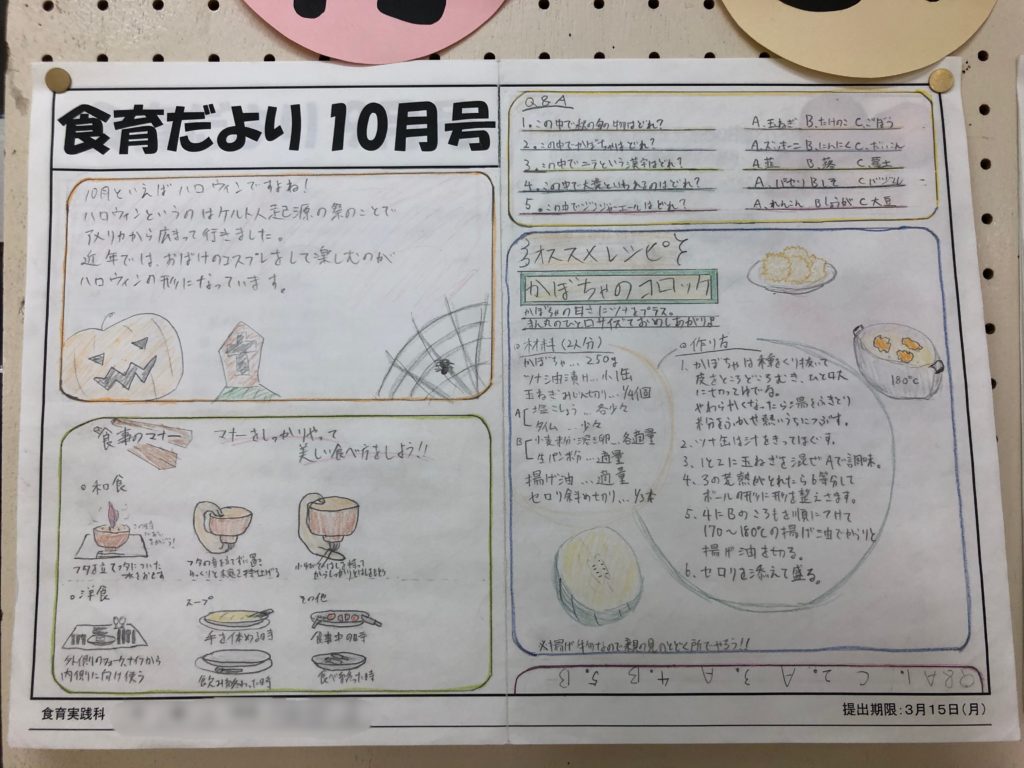 食育だより 10月号
10月といえばハロウィンですよね!
ハロウィンというのはケルト人起源の祭のことで
アメリカから広まって行きました。
近年では、おばけのコスプレをして楽しむのが
ハロウィンの形になっています。
食事のマナー
マナーをしっかりやって
美しい食べ方をしよう!!
○和食
フタを立てフタについた
水をおとす
○洋食
外側のフォーク、ナイフから
内側に向け使う
スープ
手を休める時
飲み終わった時
その他
食事中の時
食べ終った時
Q&A
1.この中で秋の食べ物はどれ? A.玉ねぎ B.たけのこ C.ごぼう
2.この中でかぼちゃはどれ? A.ズッキーニ B.にんにく C.だいこん
3.この中でニラという漢字はどれ? A.韮 B.蕗 C.
4.この中で大葉といわれるのはどれ? A.パセリ B.しそ C.バジル
5.この中でジンジャーエールはどれ? A.れんこん B.しょうが C.大豆
オススメレシピ
かぼちゃのコロッケ
かぼちゃの甘さにツナをプラス。
まん丸のひと口サイズでおめしあがりよ
○材料(2人分)
かぼちゃ…250g
ツナ油漬け…小1缶
玉ねぎみじん切り…1/4個
A 塩こしょう…各少々
タイム…少々
B 小麦粉・溶き卵…各適量
生パン粉…適量
揚げ油…適量
セロリ斜め切り…1/3本
○作り方
1.かぼちゃは種をくり抜いて
皮をところどころむき、ひと口大
に切ってゆでる。
やわらかくなったら湯をふきとり
水分をふかせ熱いうちにつぶす。
2.ツナ缶は汁をきってほぐす。
3.1と2に玉ねぎを混ぜAで調味。
4.3の荒熱がとれたら6等分して
ボールの形に形を整えさます。
5.4にBのころもを順につけて
170〜180℃の揚げ油でからりと
揚げ油を切る。
6.セロリを添えて盛る。
180℃
※揚げ物なので親の見のとどく所でやろう!!
Q&A 1.C 2.A 3.A 4.B 5.B
食育実践科
提出期限:3月15日(月)